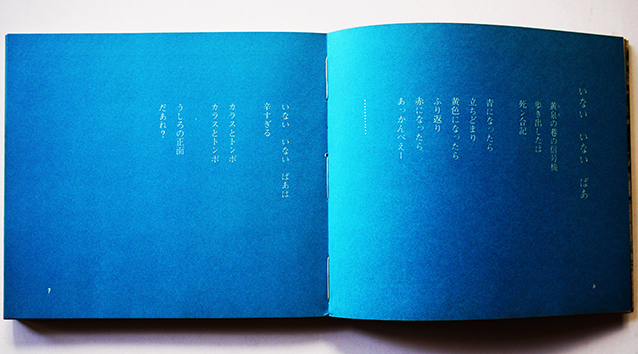 いない　いない　ばあ
黄泉の巷の信号機
歩き出したは
死ン合記
青になったら
立ちどまり
黄色になったら
ふり返り
赤になったら
あっかんべえー
…………
いない　いない　ばあは
辛すぎる
カラスとトンボ
カラスとトンボ
うしろの正面
だあれ？
7